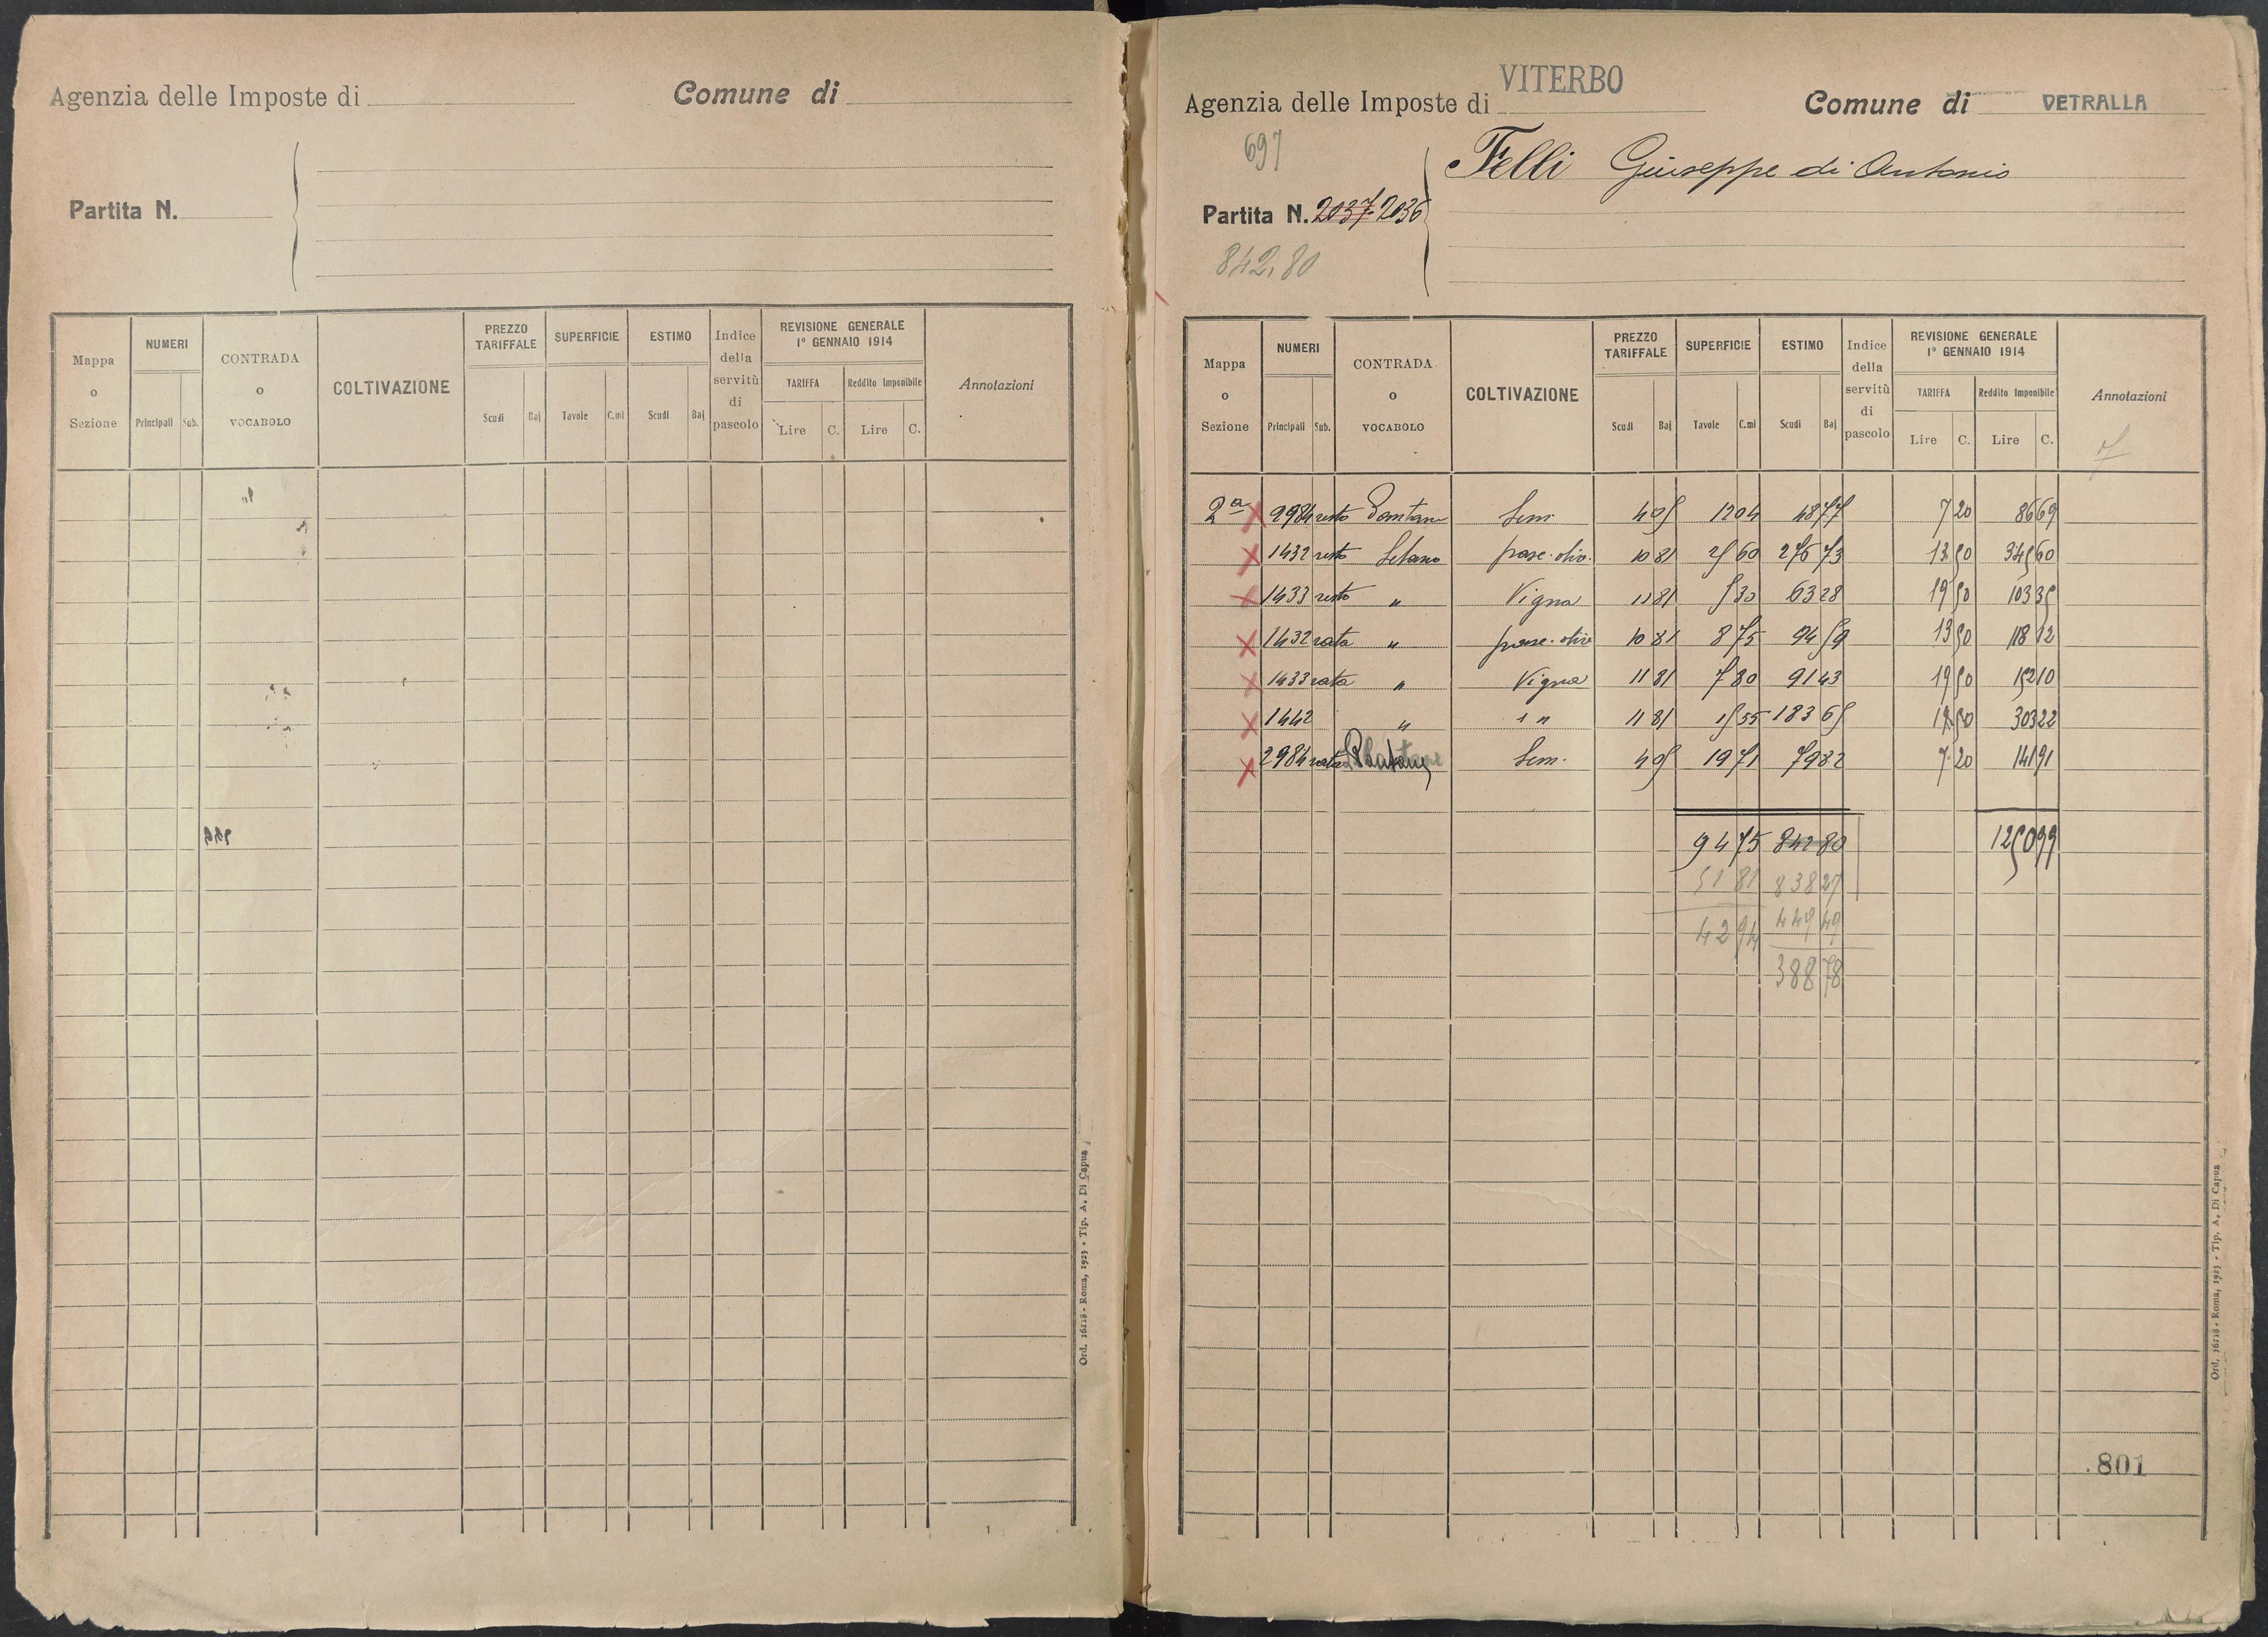 Agenzia delle Imposte di
Comune di
Partita N.
Mappa o Sezione
NUMERI
Principali Sub.
CONTRADA o VOCABOLO
COLTIVAZIONE
PREZZO TARIFFALE
Scudi Baj
SUPERFICIE
Tavole C.mi
ESTIMO
Scudi Baj
Indice della servitù di pascolo
REVISIONE GENERALE 1° GENNAIO 1914
TARIFFA
Lire C.
Reddito Imponibile
Lire C.
Annotazioni
Ord. 16118 - Roma, 1923 - Tip. A. Di Capua
Agenzia delle Imposte di VITERBO
Comune di VETRALLA
697
Felli Giuseppe di Antonio
Partita N. 2037 2036
842.80
Mappa o Sezione
NUMERI
Principali Sub.
CONTRADA o VOCABOLO
COLTIVAZIONE
PREZZO TARIFFALE
Scudi Baj
SUPERFICIE
Tavole C.mi
ESTIMO
Scudi Baj
Indice della servitù di pascolo
REVISIONE GENERALE 1° GENNAIO 1914
TARIFFA
Lire C.
Reddito Imponibile
Lire C.
Annotazioni
2a 2984 resto Sem 4 05 12 04 48 77 7 20 86 69
1432 resto pasc. oliv. 10 81 25 60 276 73 13 50 345 60
1433 resto " Vigna 11 81 5 30 63 28 19 50 103 35
1432 rata " pasc. olive 10 81 8 75 94 59 13 50 118 12
1433 rata " Vigna 11 81 7 80 91 43 19 50 152 10
1442 " " 11 81 15 55 183 65 19 50 303 22
2984 rata Sem. 4 05 19 71 79 82 7 20 141 91
94 75 842 80 1250 99
51 81 838 27
42 94 449 49
388 78
801
Ord. 16118 - Roma, 1923 - Tip. A. Di Capua